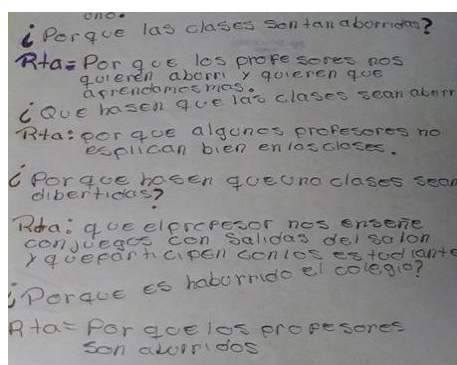 uno.
¿Porque las clases son tan aborridas?
Rta= Por que los profesores nos
quieren aborri y quieren que
aprendamos mas.
¿Que hasen que las clases sean aborr
Rta: por que algunos profesores no
esplican bien en las clases.
¿Por que hasen que una clases sean
dibertidas?
Rta: que el profesor nos enseñe
con juegos con salidas del salon
y que participen con los estudiante
¿Porque es haburrido el colegio?
Rta= Por que los profesores
son aburridos